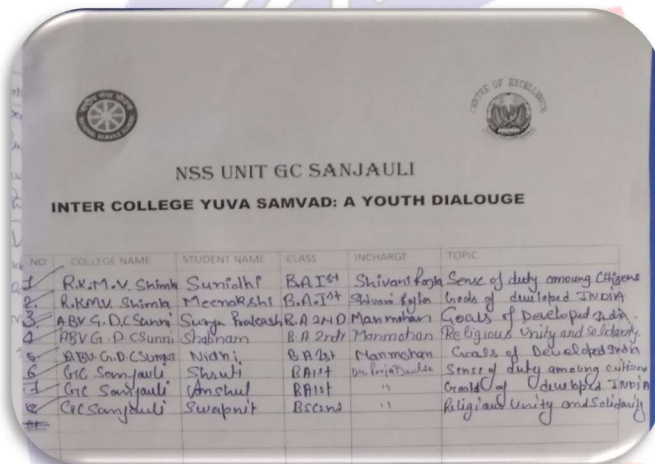 CENTRE OF EXCELLENCE
NSS UNIT GC SANJAULI
INTER COLLEGE YUVA SAMVAD: A YOUTH DIALOUGE
NO COLLEGE NAME STUDENT NAME CLASS INCHARGE TOPIC
1 R.K.M.V. Shimla Sunidhi BA Ist Shivani Sense of duty amoung Citizens
2. R.KMV Shimla Meenakshi B.A. Ist Shivani Goals of developed INDIA
3. ABV G.D.C Sunni Surya Prakash B.A 2ND Manmohan Goals of Developed India.
4 ABV G.D.C Sunni Shabnam B.A 2nd Manmohan Religious Unity and
5. ABV. G.D.C Nidhi BA 1st Manmohan Goals of Developed India
6 GC Sanjauli Shruti BA 1st Dr. Sense of duty amoung
7 GC Sanjauli Anshul BA 1st " of developed INDIA
8 GC Sanjauli Swapnit " Religious Unity and Solidarity